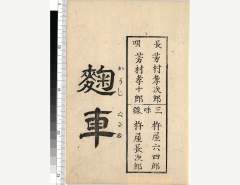 長唄
芳村孝次郎
芳村孝十郎
三味線
杵屋六四郎
杵屋長次郎
かうじ
麴車